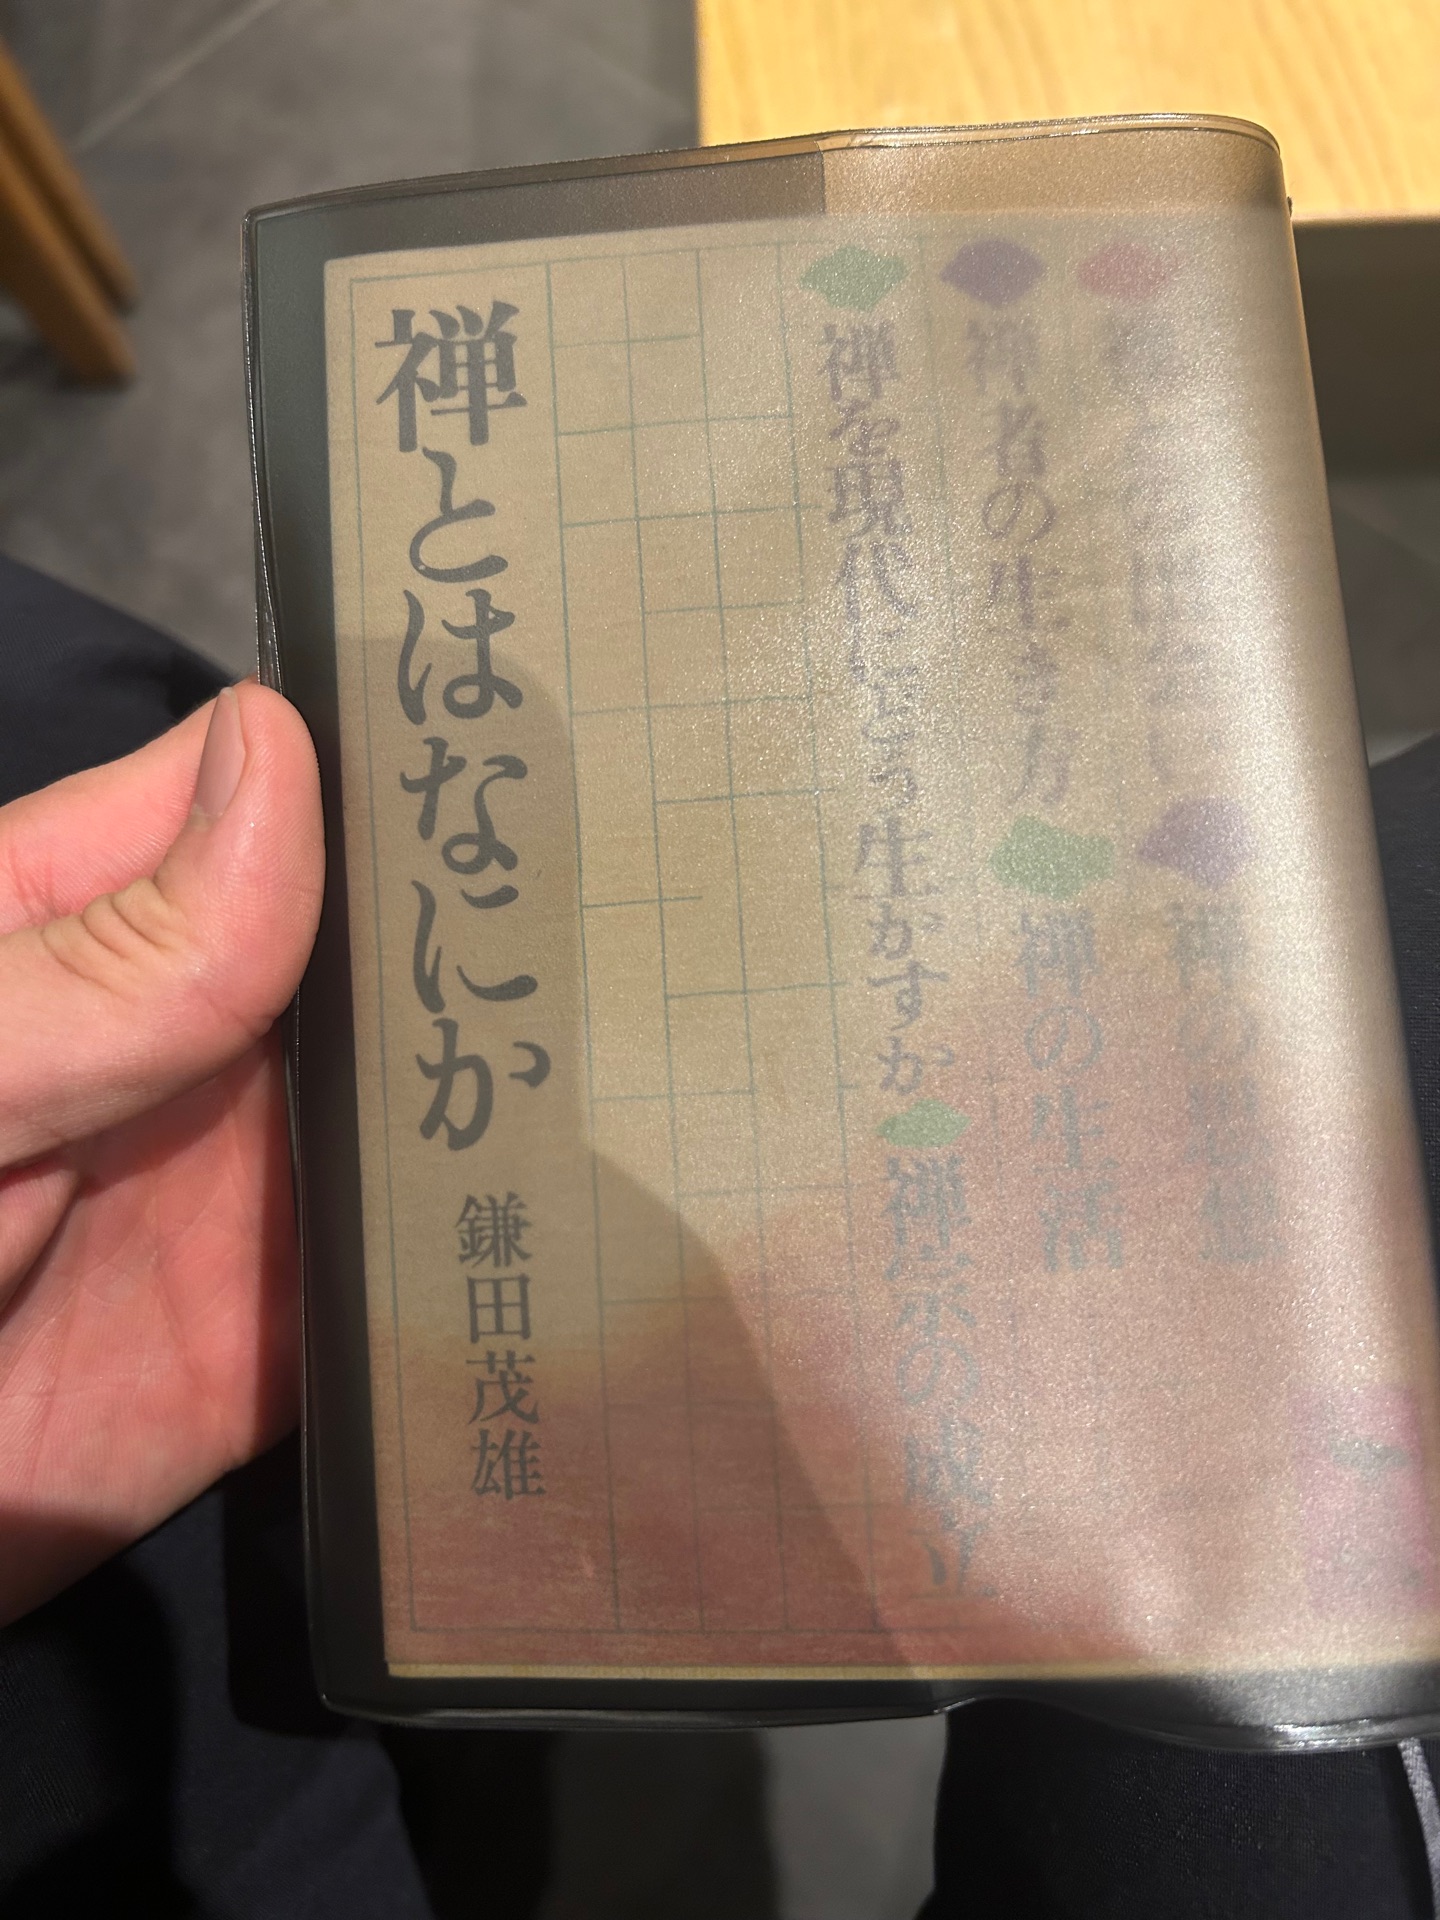 禅とはなにか
鎌田茂雄
禅の思想
禅者の生き方
禅の生活
禅を現代にどう生かすか
禅宗の成立